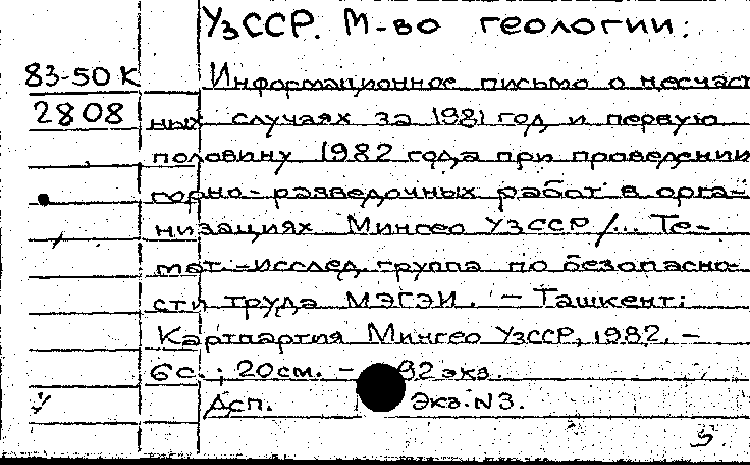 УзССР. М-во геологии:
83-50К Информационное письмо о несчаст
2808 ных случаях за 1981 год и первую
половину 1982 года при проведении
горно-разведочных работ в орга-
низациях Мингео УзССР/... Те-
мат.-исслед. группа по безопасно-
сти труда МЭГЭИ. - Ташкент:
Картпартия Мингео УзССР, 1982. -
6с.; 20см. - 92 экз.
Дсп. Экз.N3.